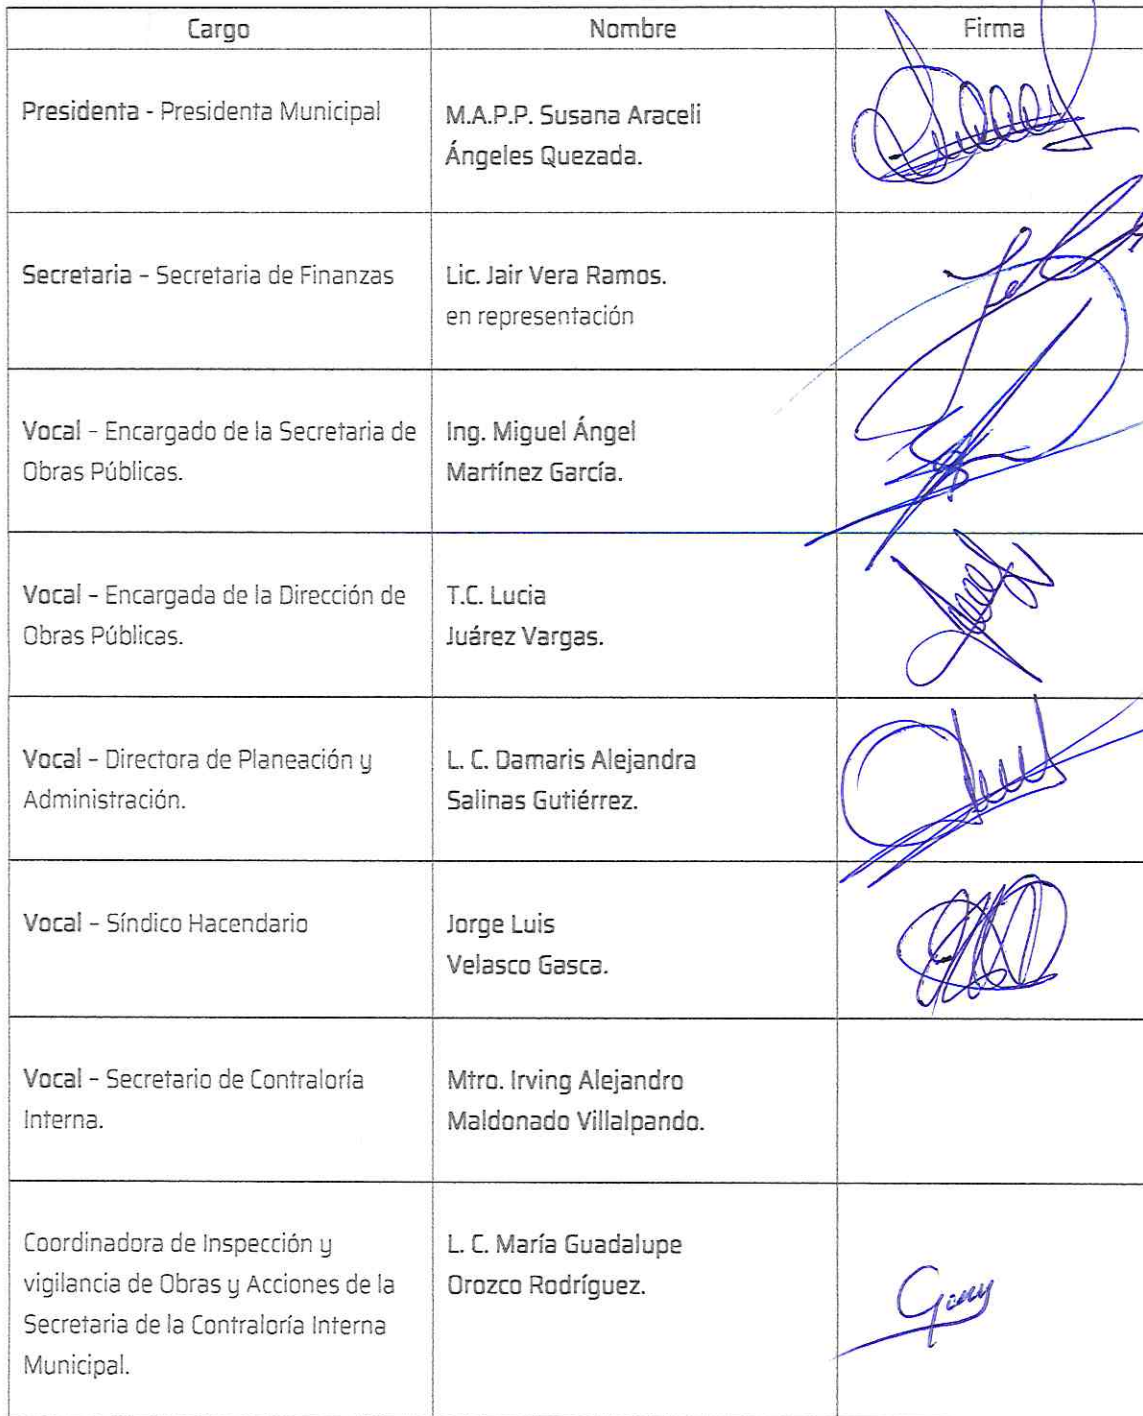 Cargo Nombre Firma
Presidenta - Presidenta Municipal
M.A.P.P. Susana Araceli
Ángeles Quezada.
Secretaria – Secretaria de Finanzas
Lic. Jair Vera Ramos.
en representación
Vocal – Encargado de la Secretaria de
Obras Públicas.
Ing. Miguel Ángel
Martínez García.
Vocal – Encargada de la Dirección de
Obras Públicas.
T.C. Lucia
Juárez Vargas.
Vocal – Directora de Planeación y
Administración.
L. C. Damaris Alejandra
Salinas Gutiérrez.
Vocal – Síndico Hacendario
Jorge Luis
Velasco Gasca.
Vocal – Secretario de Contraloría
Interna.
Mtro. Irving Alejandro
Maldonado Villalpando.
Coordinadora de Inspección y
vigilancia de Obras y Acciones de la
Secretaria de la Contraloría Interna
Municipal.
L. C. María Guadalupe
Orozco Rodríguez.